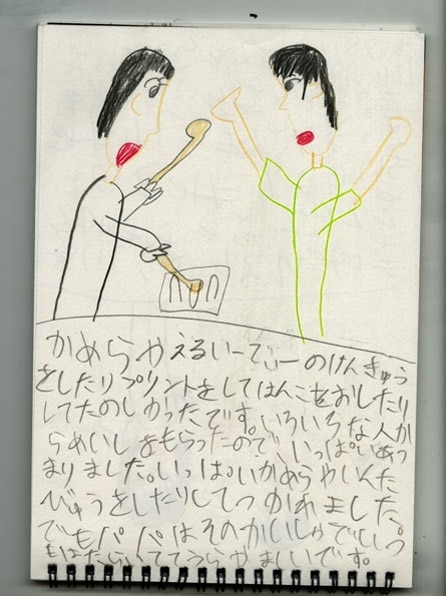 かめらやえるいーでぃーのけんきゅう
をしたりプリントをしてはんこをおしたり
してたのしかったです。いろいろな人か
らめいしをもらったのでいっぱいあつ
まりました。いっぱいかめらやいんた
びゅうをしたりしてつかれました。
でもパパはそのかいしゃでいつ
もはたらいててうらやましいです。